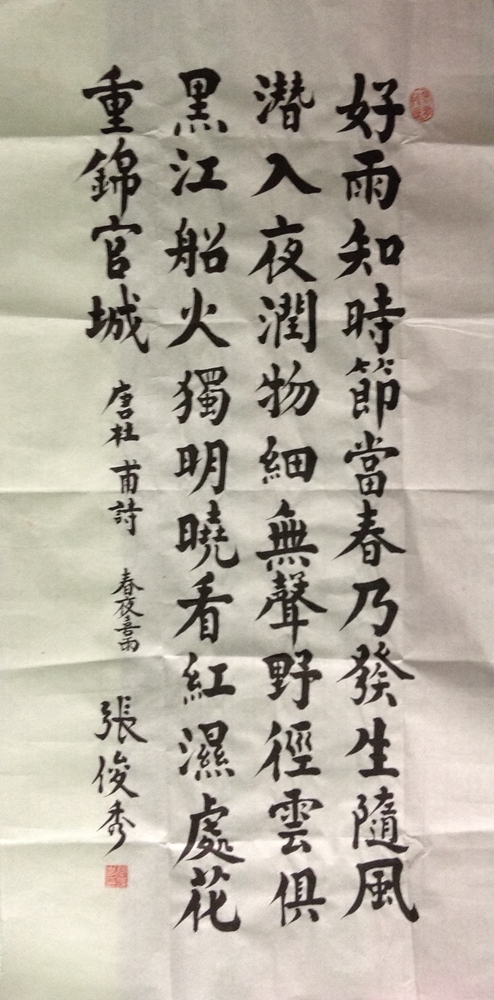 好雨知時節當春乃發生隨風
潛入夜潤物細無聲野徑雲俱
黑江船火獨明曉看紅濕處花
重錦官城
唐杜甫詩 春夜喜雨
張俊秀